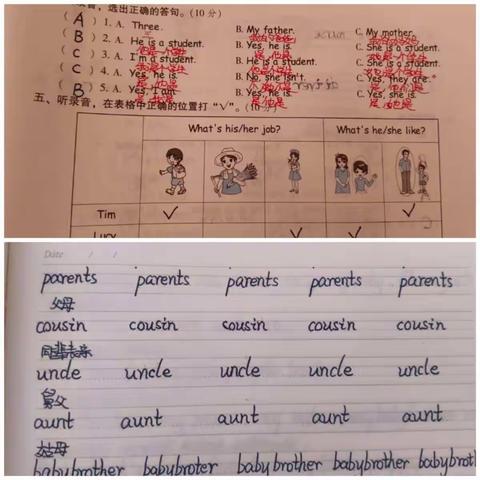 选出正确的答句。(10分)
(A) 1. A. Three. B. My father. C. My mother.
(B) 2. A. He is a student. B. Yes, he is. C. She is a student.
(C) 3. A. I'm a student. B. He is a student. C. She is a student.
(C) 4. A. Yes, he is. B. No, she isn't. C. Yes, they are.
(B) 5. A. Yes, I am. B. Yes, he is. C. Yes, she is.
五、听录音，在表格中正确的位置打“√”。(10分)
What's his/her job? What's he/she like?
Tim √ √
Lucy √ √
Date / /
parents parents parents parents parents
父母
cousin cousin cousin cousin cousin
同辈表亲
uncle uncle uncle uncle uncle
舅父
aunt aunt aunt aunt aunt
姑母
babybrother babybroter babybrother babybrother babybrot